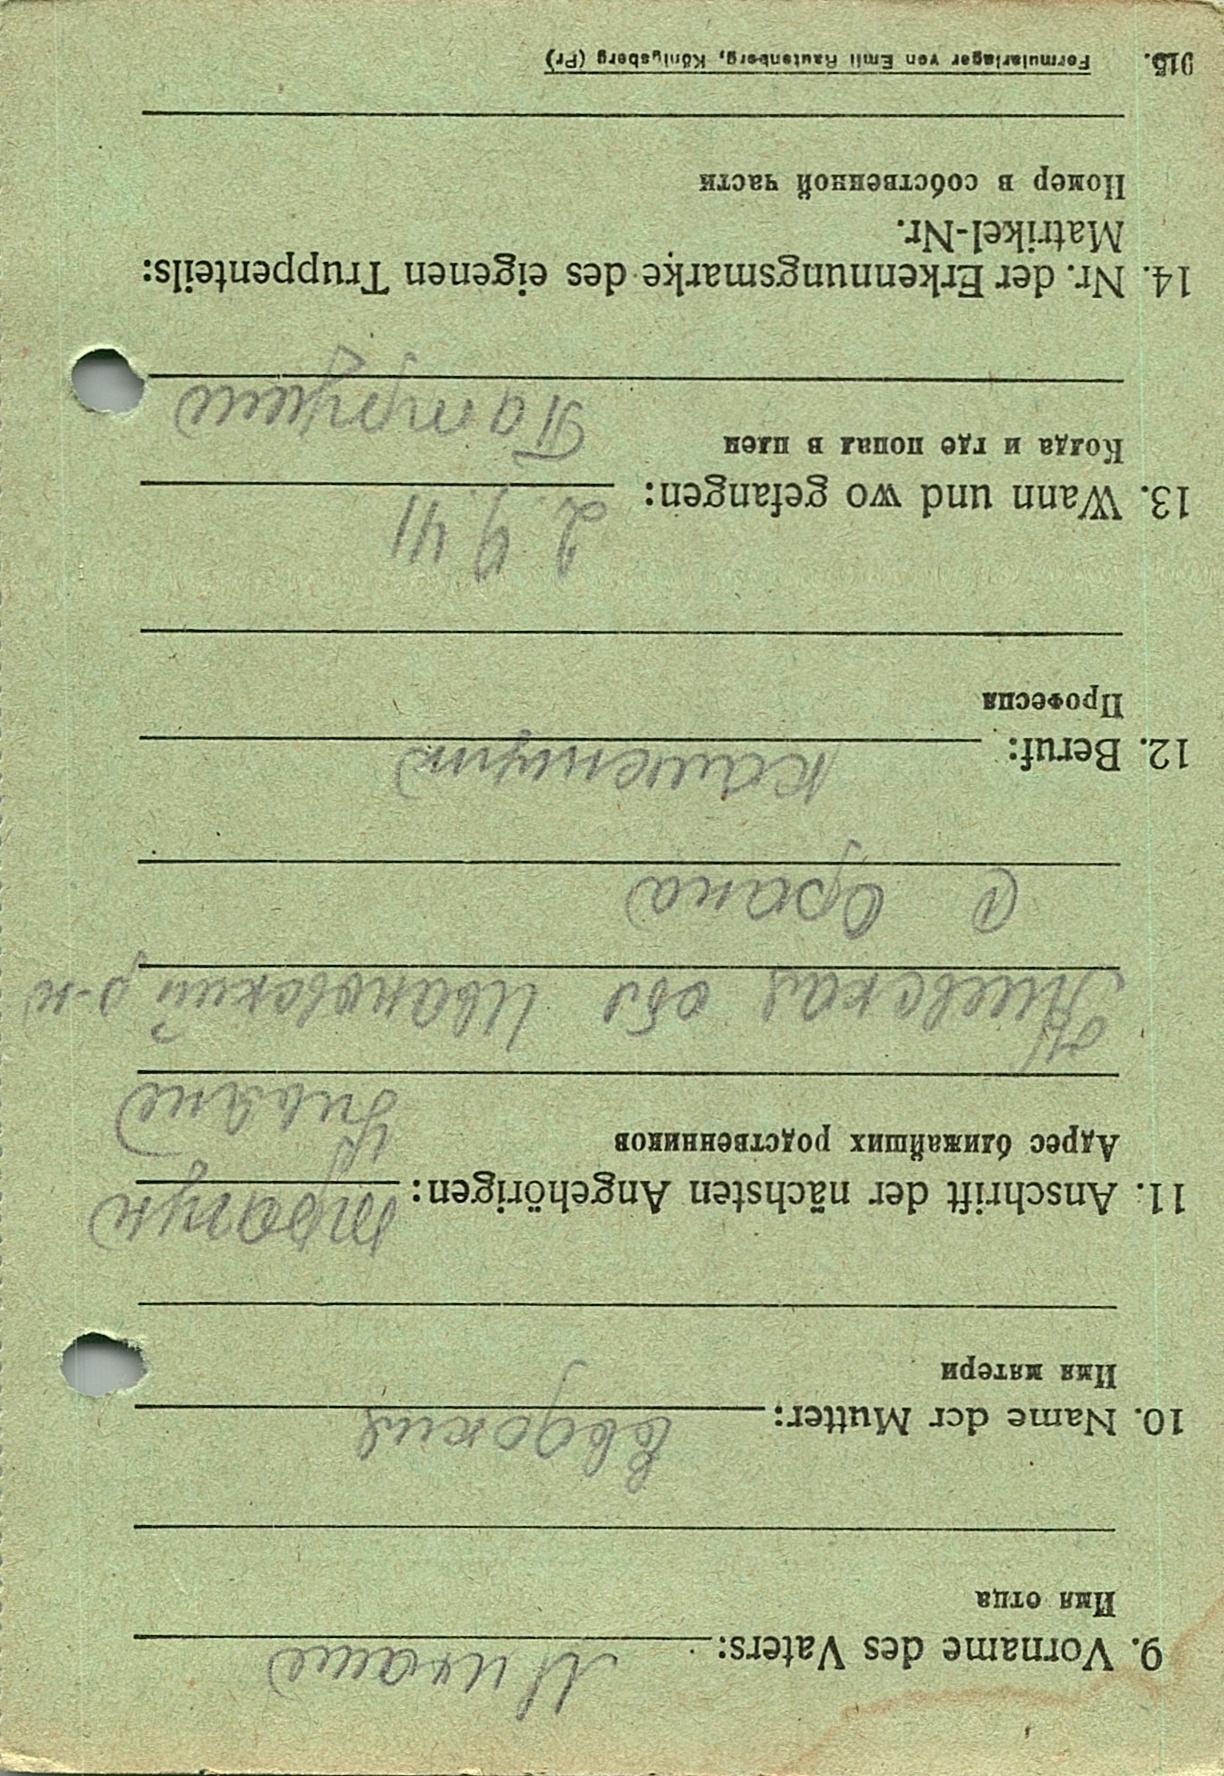 9. Vorname des Vaters: Михаил
Имя отца
10. Name der Mutter: Евдокия
Имя матери
11. Anschrift der nächsten Angehörigen:
Адрес ближайших родственников
Киевская обл Ивановский р-н
с
12. Beruf: каменщик
Професия
13. Wann und wo gefangen:
Колда и где попал в плен
14. Nr. der Erkennungsmarke des eigenen Truppenteils:
Matrikel-Nr.
Номер в собственной части
Formularlager von Emil Rautenberg, Königsberg (Pr)